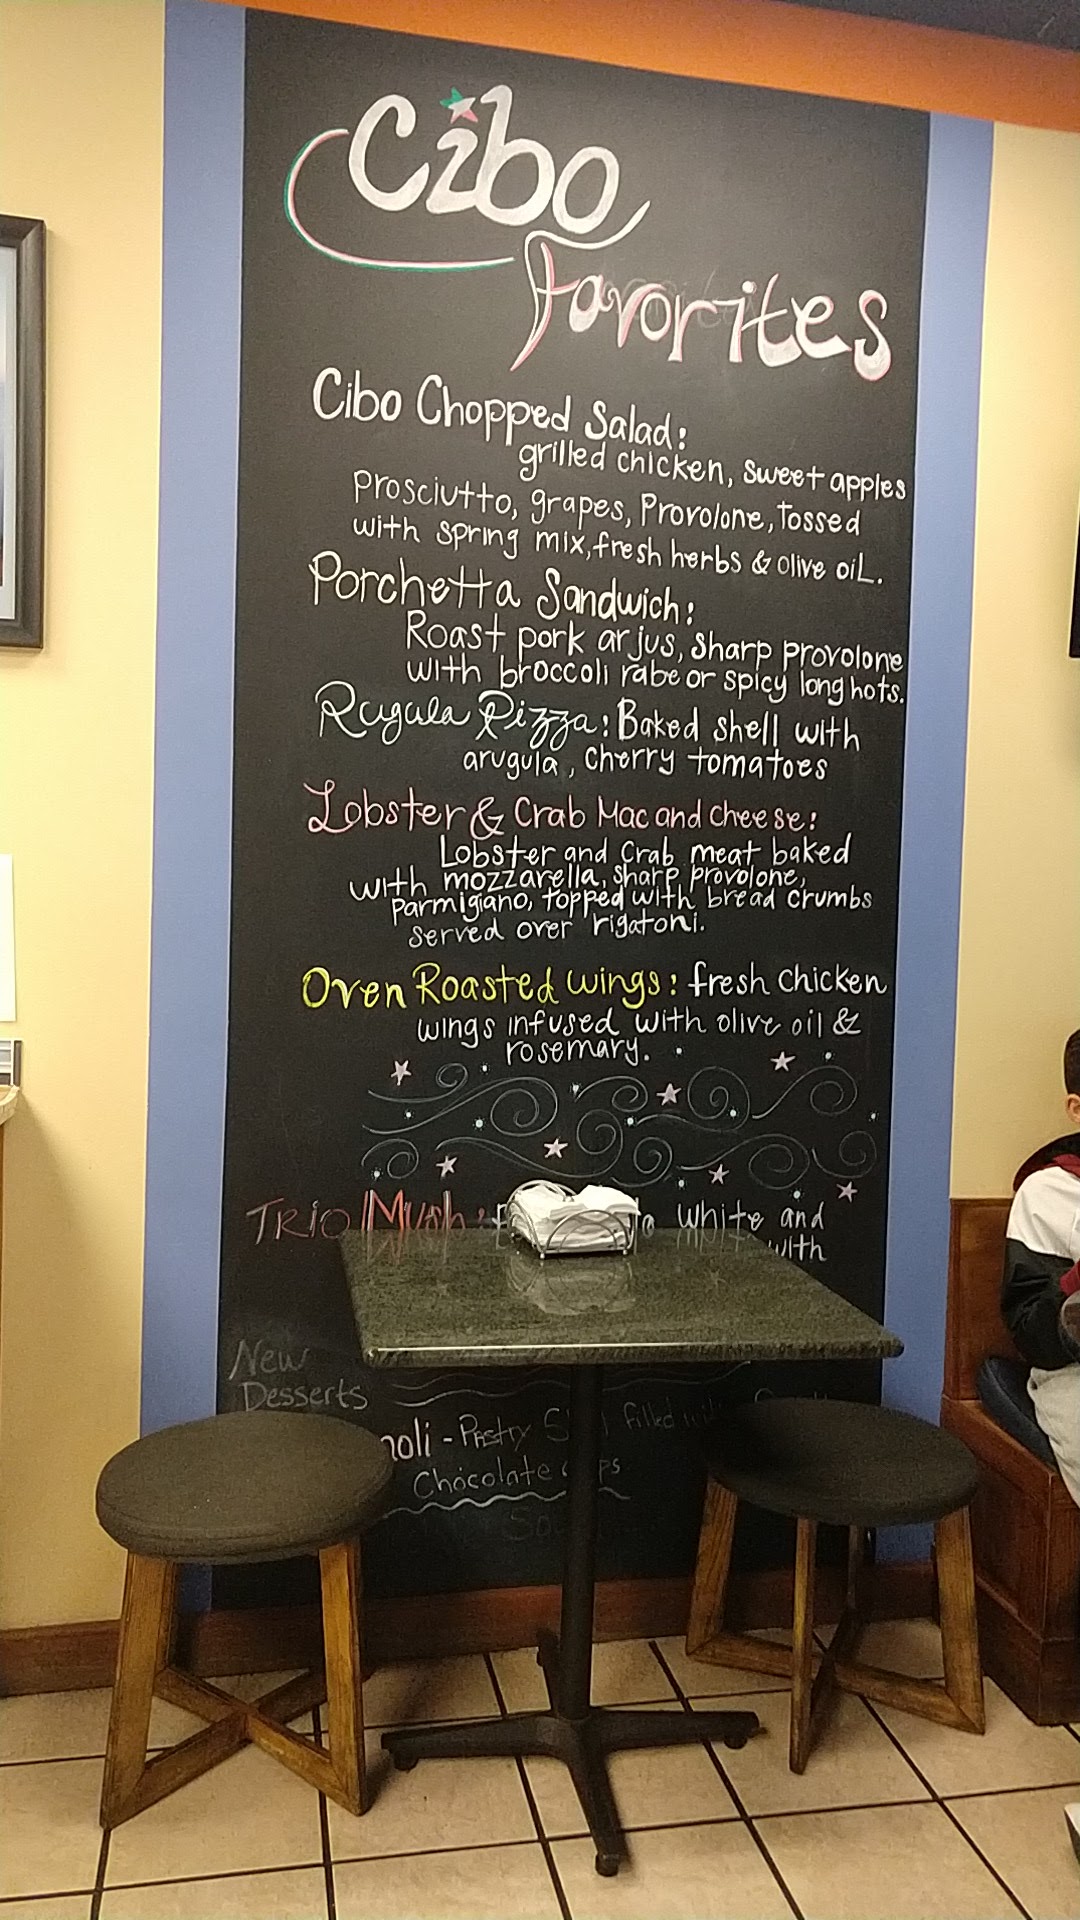 Cibo
favorites
Cibo Chopped Salad:
grilled chicken, sweet apples
Prosciutto, grapes, Provolone, Tossed
with spring mix, fresh herbs & olive oil.
Porchetta Sandwich:
Roast pork arjus, sharp provolone
with broccoli rabe or spicy long hots.
Rugula Pizza: Baked shell with
arugula, cherry tomatoes
Lobster & Crab Mac and cheese:
Lobster and Crab meat baked
with mozzarella, sharp provolone,
Parmigiano, topped with bread crumbs
served over rigatoni.
Oven Roasted wings: fresh chicken
wings infused with olive oil &
rosemary.
TRIO white and
with
New
Desserts
noli - Pastry filled
Chocolate